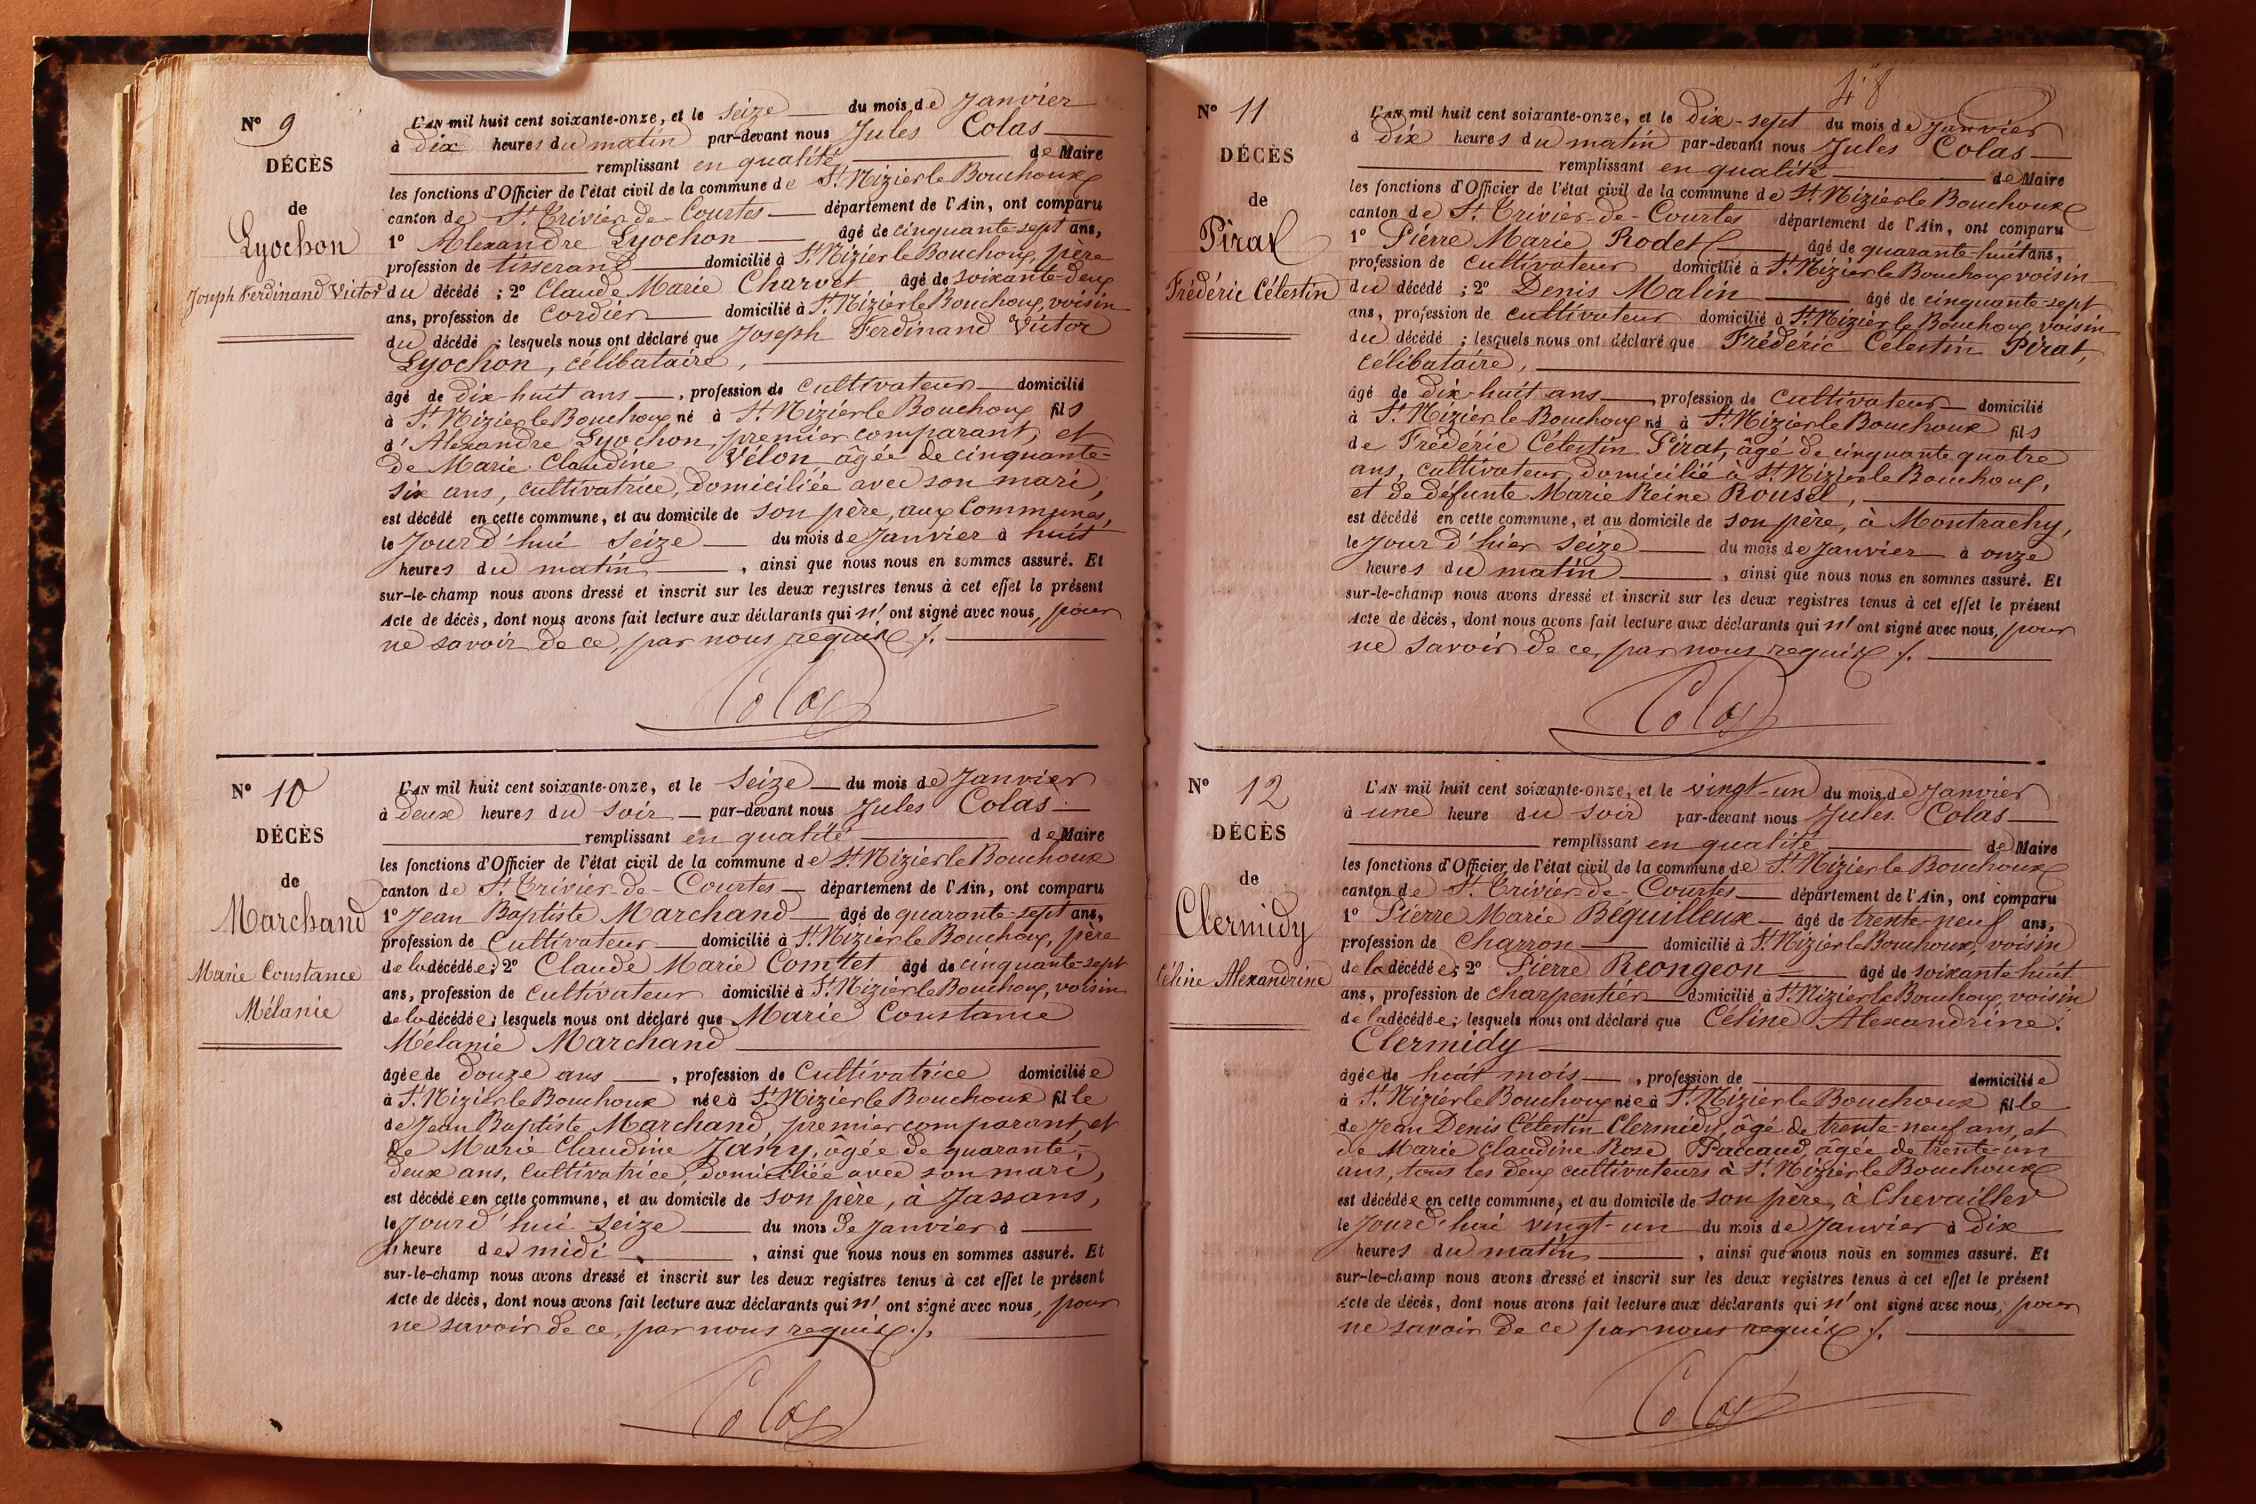 N° 9
DÉCÈS
de
Lyochon
Joseph Ferdinand Victor
L'AN mil huit cent soixante-onze, et le seize du mois de Janvier
à dix heures du matin par-devant nous Jules Colas
remplissant en qualité de Maire
les fonctions d'Officier de l'état civil de la commune de St Nizier le Bouchoux
canton de St Trivier-de-Courtes département de l'Ain, ont comparu
1° Alexandre Lyochon âgé de cinquante-sept ans,
profession de tisserand domicilié à St Nizier le Bouchoux, père
du décédé ; 2° Claude Marie Charvet âgé de soixante-deux
ans, profession de cordier domicilié à St Nizier le Bouchoux, voisin
du décédé ; lesquels nous ont déclaré que Joseph Ferdinand Victor
Lyochon, célibataire,
âgé de dix-huit ans, profession de cultivateur domicilié
à St Nizier le Bouchoux né à St Nizier le Bouchoux fils
d'Alexandre Lyochon, premier comparant, et
de Marie Claudine Vélon âgée de cinquante-
six ans, cultivatrice, domiciliée avec son mari,
est décédé en cette commune, et au domicile de son père, aux Communes,
le Jourd'hui seize du mois de Janvier à huit
heures du matin, ainsi que nous nous en sommes assuré. Et
sur-le-champ nous avons dressé et inscrit sur les deux registres tenus à cet effet le présent
Acte de décès, dont nous avons fait lecture aux déclarants qui n'ont signé avec nous, pour
ne savoir de ce, par nous requis ./.
Colas
N° 10
DÉCÈS
de
Marchand
Marie Constance
Mélanie
L'AN mil huit cent soixante-onze, et le seize du mois de Janvier
à deux heures du soir par-devant nous Jules Colas
remplissant en qualité de Maire
les fonctions d'Officier de l'état civil de la commune de St Nizier le Bouchoux
canton de St Trivier-de-Courtes département de l'Ain, ont comparu
1° Jean Baptiste Marchand âgé de quarante-sept ans,
profession de Cultivateur domicilié à St Nizier le Bouchoux, père
de la décédée; 2° Claude Marie Comtet âgé de cinquante-sept
ans, profession de cultivateur domicilié à St Nizier le Bouchoux, voisin
de la décédée; lesquels nous ont déclaré que Marie Constance
Mélanie Marchand
âgée de douze ans, profession de Cultivatrice domiciliée
à St Nizier le Bouchoux née à St Nizier le Bouchoux fille
de Jean Baptiste Marchand, premier comparant, et
de Marie Claudine Jany, âgée de quarante-
deux ans, cultivatrice, domiciliée avec son mari,
est décédée en cette commune, et au domicile de son père, à Jassans,
le Jourd'hui seize du mois de Janvier à
heure de midi, ainsi que nous nous en sommes assuré. Et
sur-le-champ nous avons dressé et inscrit sur les deux registres tenus à cet effet le présent
Acte de décès, dont nous avons fait lecture aux déclarants qui n'ont signé avec nous, pour
ne savoir de ce, par nous requis ./.
Colas
N° 11
DÉCÈS
de
Pirat
Frédéric Célestin
L'AN mil huit cent soixante-onze, et le dix-sept du mois de Janvier
à dix heures du matin par-devant nous Jules Colas
remplissant en qualité de Maire
les fonctions d'Officier de l'état civil de la commune de St Nizier le Bouchoux
canton de St Trivier-de-Courtes département de l'Ain, ont comparu
1° Pierre Marie Rodet âgé de quarante-huit ans,
profession de cultivateur domicilié à St Nizier le Bouchoux voisin
du décédé ; 2° Denis Malin âgé de cinquante-sept
ans, profession de cultivateur domicilié à St Nizier le Bouchoux, voisin
du décédé ; lesquels nous ont déclaré que Fréderic Célestin Pirat,
célibataire,
âgé de dix-huit ans, profession de cultivateur domicilié
à St Nizier le Bouchoux né à St Nizier le Bouchoux fils
de Fréderic Célestin Pirat, âgé de cinquante quatre
ans, cultivateur, domicilié à St Nizier le Bouchoux,
et de défunte Marie Reine Rousel,
est décédé en cette commune, et au domicile de son père, à Montrachy,
le Jour d'hier seize du mois de Janvier à onze
heures du matin, ainsi que nous nous en sommes assuré. Et
sur-le-champ nous avons dressé et inscrit sur les deux registres tenus à cet effet le présent
Acte de décès, dont nous avons fait lecture aux déclarants qui n'ont signé avec nous, pour
ne savoir de ce, par nous requis ./.
Colas
N° 12
DÉCÈS
de
Clermidy
Céline Alexandrine
L'AN mil huit cent soixante-onze, et le vingt-un du mois de Janvier
à une heure du soir par-devant nous Jules Colas
remplissant en qualité de Maire
les fonctions d'Officier de l'état civil de la commune de St Nizier le Bouchoux
canton de St Trivier-de-Courtes département de l'Ain, ont comparu
1° Pierre Marie Béquilleux âgé de trente-neuf ans,
profession de Charron domicilié à St Nizier le Bouchoux, voisin
de la décédée; 2° Pierre Rongeon âgé de soixante-huit
ans, profession de charpentier domicilié à St Nizier le Bouchoux, voisin
de la décédée; lesquels nous ont déclaré que Céline Alexandrine
Clermidy
âgée de huit mois, profession de domiciliée
à St Nizier le Bouchoux née à St Nizier le Bouchoux fille
de Jean Denis Célestin Clermidy, âgé de trente-neuf ans, et
de Marie Claudine Rose Paccaud, âgée de trente-un
ans, tous les deux cultivateurs à St Nizier le Bouchoux
est décédée en cette commune, et au domicile de son père, à Chevailler
le Jourd'hui vingt-un du mois de Janvier à dix
heures du matin, ainsi que nous nous en sommes assuré. Et
sur-le-champ nous avons dressé et inscrit sur les deux registres tenus à cet effet le présent
Acte de décès, dont nous avons fait lecture aux déclarants qui n'ont signé avec nous, pour
ne savoir de ce par nous requis ./.
Colas